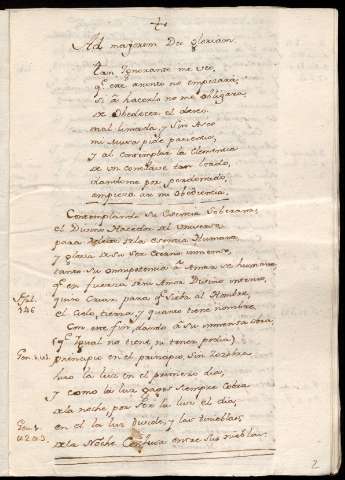 Ad majorem Dei gloriam.
Tan Ignorante me veo,
qe. este asunto no empezara,
si á hacerlo no me obligara,
de Obedecer el deseo.
mal limada y sin Aseo
mi Musa pide
y al contemplar la Clemencia
de un
dandome por perdonado,
empieza asi mi Obediencia.
Contemplando su Esencia Soberana,
el Divino Hacedor del Universo,
para de la esencia Humana,
y gloria de su ser Eterno inmenso,
tanto su omnipotencia á Amar se humana,
qe. en fuerza de su Amor Divino intenso,
quiso Criar, para qe. sirba al Hombre,
Psal.
146
el cielo, tierra, y quanto tiene nombre.
Con este fin, dando á su inmensa obra,
(qe. Igual no tiene, ni tener podia)
Gen. 1. v. 1.
principio en el principio, sin zozobra
hizo la luz en el primero dia,
y como la luz siempre cobra
de la noche, por ser la luz el dia,
Gen. 1.
v. 2. a 3.
en el la luz divide, y las tinieblas,
de la Noche Confusa entre sus nieblas.
2